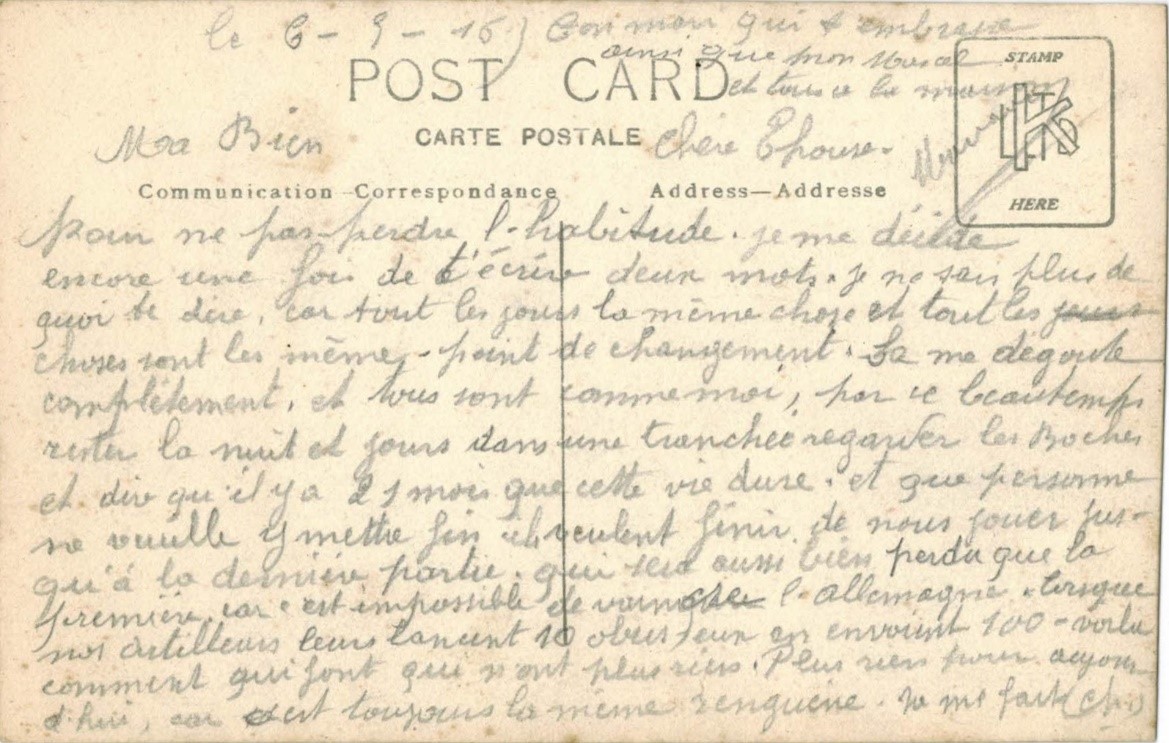 le 6-5-16) Ton mari qui t'embrasse
ainsi que mon
et tous a la maison
POST CARD
STAMP
HERE
CARTE POSTALE
Ma Bien Chère Epouse.
Communication-Correspondance
Address-Addresse
pour ne pas perdre l'habitude. je me décide
encore une fois de t'écrire deux mots. je ne sais plus de
quoi te dire, car tout les jours la même chose et tout les jours
choses sont les même, point de changement. Sa me dégoute
complètement, et tous sont comme moi, par ce beau temps
rester la nuit et jours dans une tranchée regarder les Boches
et dire qu'il y a 21 mois que cette vie dure. et que personne
ne veuille y mettre fin ils veulent finir de nous jouer jus-
qu'à la dernière partie. qui sera aussi bien perdu que la
première, car c'est impossible de vaincre l'allemagne. lorsque
nos artilleurs leurs lancent 10 obus, eux en envoient 100 - voila
comment qui font qui n'ont plus rien. Plus rien pour aujour
d'hui, car c'est toujours la même rengaine. Je me fait (ch.)